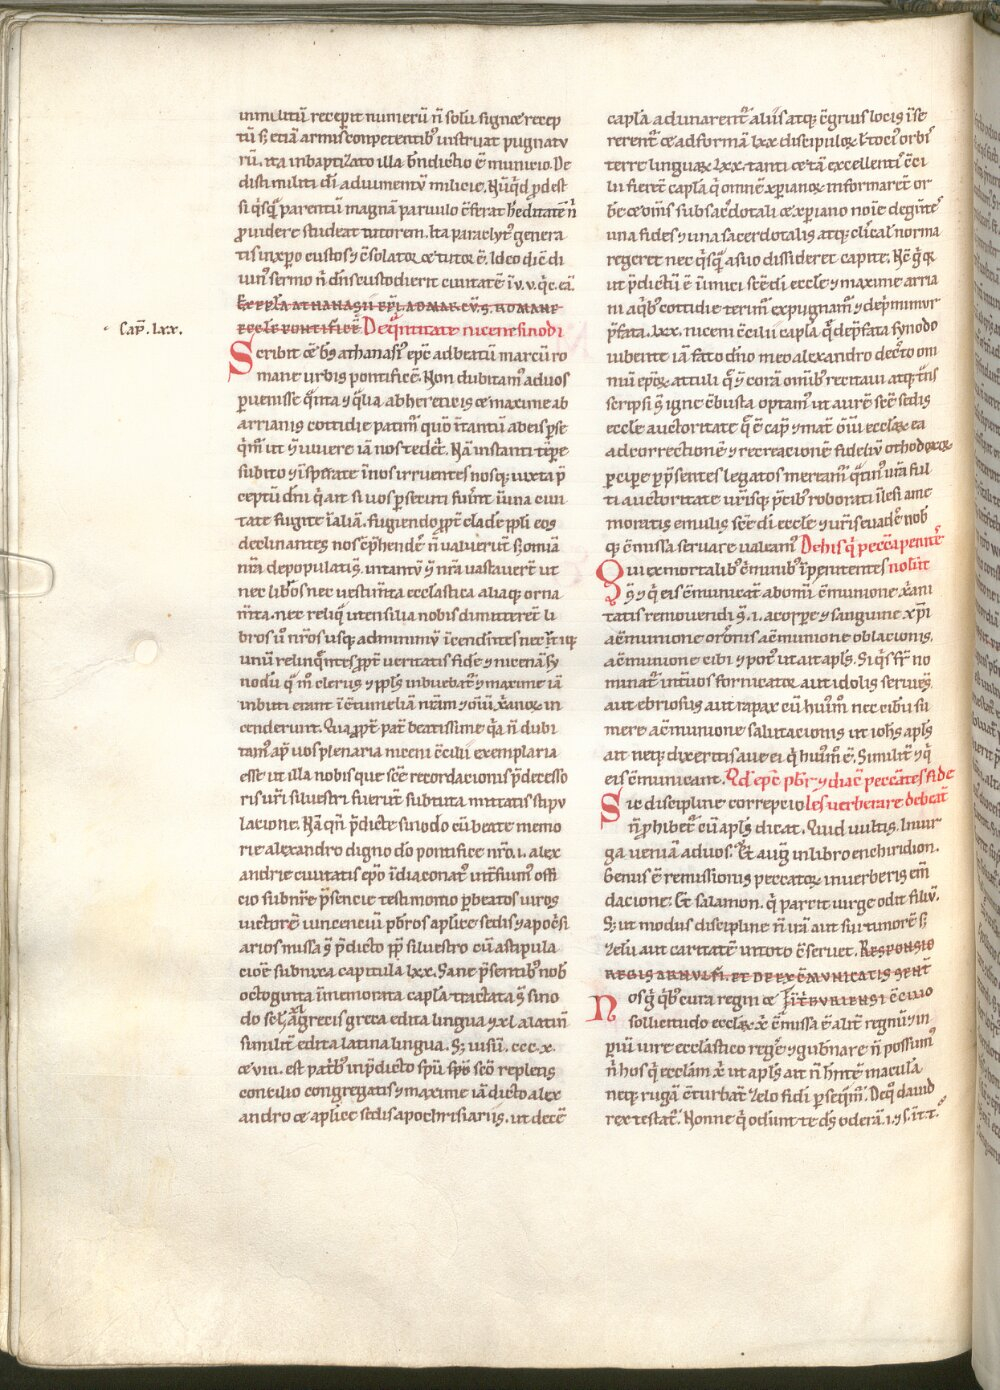 inmilitū recepit numerū ñ solū signatꝫ recep
tū sꝫ etiā armis conpetentibꝰ instruat pugnatu
rū. ita inbaptizato illa bñdictio ē municio. De
disti militi dī adiumentū milicie. Nūqͥd ꝓdest
si qͥsqͣ parentū magnā paruulo cōferat heditatē ñ
ꝓuidere studeat tutorem. Ita paraclytꝰ genera
tis inxpo custos ⁊ cōsolator ⁊ tutor ē. Ideo
iuinꝰ sermo ñ dñs custodierit ciuitatē
Exepla athanasii epi ad marcū
Cap̄. lxx.
ecclē pontificē De qͣntitate niceni sinodi
Scribit ⁊ bꝰ athanasiꝰ epc̄ ad beatū marcū ro
mane urbis pontificē. Non dubitamꝰ ad uos
ꝑuenisse qͣnta ⁊ qͣlia ab hereticis ⁊ maxime ab
arrianis cottidie patimͬ quō ītantū ab eis ꝑse
qͥmͬ ut ⁊ uiuere iā nos tedet. Nā instanti tēpꝛe
subito ⁊ īsperate ī nos irruentes nosqꝫ iuxta p̄
ceptū dñi qͥ ait si uos ꝑsecuti fuīnt ī una ciui
tate fugite ī aliā. fugiendo ꝓpt̄ cladē ppli eos
declinantes nos cōp̄hendē ñ ualuerūt sꝫ omīa
nr̄a depopulatis. intantū ⁊ nr̄a uastauerūt ut
nec libros nec uestimīta ecclastica aliaqꝫ orna
mīta. nec reliqͣ utensilia nobis dimitterēt li
bros ū nr̄os usqꝫ ad minimū īcendītes nec
unū relinqͣntes ꝓpt̄ ueritatis fidē ⁊ nicenā sy
nodū qͣ mͦ clerus ⁊ ppls inbuebat̄ ⁊ maxime iā
inbuti erant ī cōtumeliā nr̄am ⁊ oīū xͣanoꝝ in
cenderunt. Quaꝓpt̄ pat̄ beatissime qͣa ñ dubi
tamꝰ ap̄ uos plenaria niceni cōcilii exemplaria
esse ut illa nobis que scē recordacionis p̄decesso
ris uri siluestri fuerūt subtuta mittatis stipu
lacione. Nā qn̄ p̄dicte sinodo cū beate memo
rie alexandro digno dō pontifice nr̄o .i. alex
andrie ciuitatis epō ī diaconatꝰ offi
cio subnīre p̄sencie testimonio ꝑ beatos uiros
uictorē ⁊ uincenciū pbros aplice sedis ⁊ apocꝛisi
arios missa ꝫ p̄dicto pp̄ siluestro cū astipula
cioē subnixa capitula lxx. Sane p̄sentibꝰ nob̄
octoginta ī memorata capla tractata ꝫ sino
do scī. xl grecis greca edita lingua ⁊ xl a latin̄
similit̄ edita latina lingua. Sꝫ uisū .ccc.x.
⁊ uiii. est patͥbꝰ in p̄dicto spū spō scō repletis
concilio congregatis ⁊ maxime iā dicto alex
andro ⁊ aplice sedis apochrisiariis. ut decē
capla adunarent̄ aliis atqꝫ cōgruis locis īse
rerent̄ ⁊ ad formā lxx discipuloꝝ ł tociꝰ orbiꝰ
terre linguaꝝ lxx. tanti ⁊ tā excellentiꝰ cōci
lii fierēt capla qͥ omnē xpianoꝝ informarēt or
bē ⁊ omīs sub sac̄dotali ⁊ xpiano noīe degītes
una fides ⁊ una sacerdotalis atqꝫ cl̄icalꝰ norma
regeret nec qͥsqͣ a suo dissideret capite. Hec qͥqꝫ
ut p̄dictū ē inimici scē dī eccle ⁊ maxime arria
ni a qͥbꝰ cottidie terimͬ expugnamͬ ⁊ dep̄mimur
p̄fata .lxx. niceni cōcilii capla qͥ dep̄fata synodo
iubente iā fato dño meo alexandro decꝫto om
niū epōꝝ attuli qͣ ⁊ corā omībꝰ recitaui atqꝫ tͣns
scripsi ꝫ igne cōbusta optamꝰ ut aurē scē sedis
eccle auctoritate qͣ ē cap̄ ⁊ mat̄ oīū ecclaꝝ ea
ad correctionē ⁊ recreacionē fideliū othodoxoꝝ
ꝑcipe ꝑ p̄sentes legatos mereamͬ qͣtinꝰ ur̄a ful
ti auctoritate ur̄isqꝫ p̄cibꝰ roborati īlesi a me
moratis emulis scē dī eccle ⁊ ur̄is euadē nob̄
qꝫ cōmissa seruare ualeamꝰ De his qͥ pecc̄a penitē
Qui ex mortalibꝰ cōmunibꝰ īpenitentes nolūt
ꝫ ⁊ qͥ eis cōmunicāt abomi cōmunione xͣani
tatis remouendi ꝫ .i. a corpe ⁊ sanguine xpī
a cōmunione orōnis a cōmunione oblacionis.
a cōmunione cibi ⁊ potꝰ ut ait apls. Si qͥs fr̄ no
minat̄ int̄ uos fornicatoꝛ aut idolis seruiēs
aut ebriosus aut rapax cū huiꝰm̄ nec cibū su
mere a cōmunione salutacionis ut iohs apls
ait neqꝫ dixeritis aue ei qͥ huiꝰm̄ ē. Similit̄ ⁊ qͥ
eis cōmunicant. Qd epc̄ pbr ⁊ diac̄ peccātes fide
Sic discipline correpcio les uerberare debeāt
ñ prohibet̄ cū apls dicat. Quid uultis. In uir
ga ueniā ad uos. Et auḡ in libro enchiridion.
Genus ē remissionis peccatoꝝ in uerberis em̄
dacione. Et salamon. qͥ parcit uirge odit filiū.
Sꝫ ut modus discipline ñ irā aut sui timorē sꝫ
zelū aut caritatē in toto cōseruet. Responsio
regis arnulfi. et de excōmunicatis
Nos qͥ qͥbꝰ cura regni ⁊ cōcilio
sollicitudo ecclaꝝ xͥ cōmissa ē alit̄ regnū ⁊ in
ꝑiū iure ecclastico regē ⁊ gubnare ñ possumꝰ
ñ hos qͥ ecclām xͥ ut apls ait ñ hn̄tē maculā
neqꝫ rugā cōturbāt zelo fidi ꝑseqͥmͬ. De qͦ dauid
rex testat̄. Nonne qͥ odiunt te dn̄s oderā .i. ⁊ s.